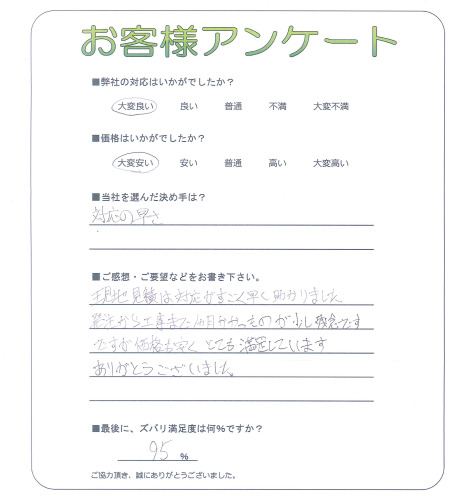 お客様アンケート
■弊社の対応はいかがでしたか？
大変良い 良い 普通 不満 大変不満
■価格はいかがでしたか？
大変安い 安い 普通 高い 大変高い
■当社を選んだ決め手は？
対応の早さ
■ご感想・ご要望などをお書き下さい。
現地見積は対応がすごく早く助かりました
発注から工事まで1ヶ月かかったものが少し残念です
ですが価格も安く とても満足しています
ありがとうございました。
■最後に、ズバリ満足度は何％ですか？
95 ％
ご協力頂き、誠にありがとうございました。